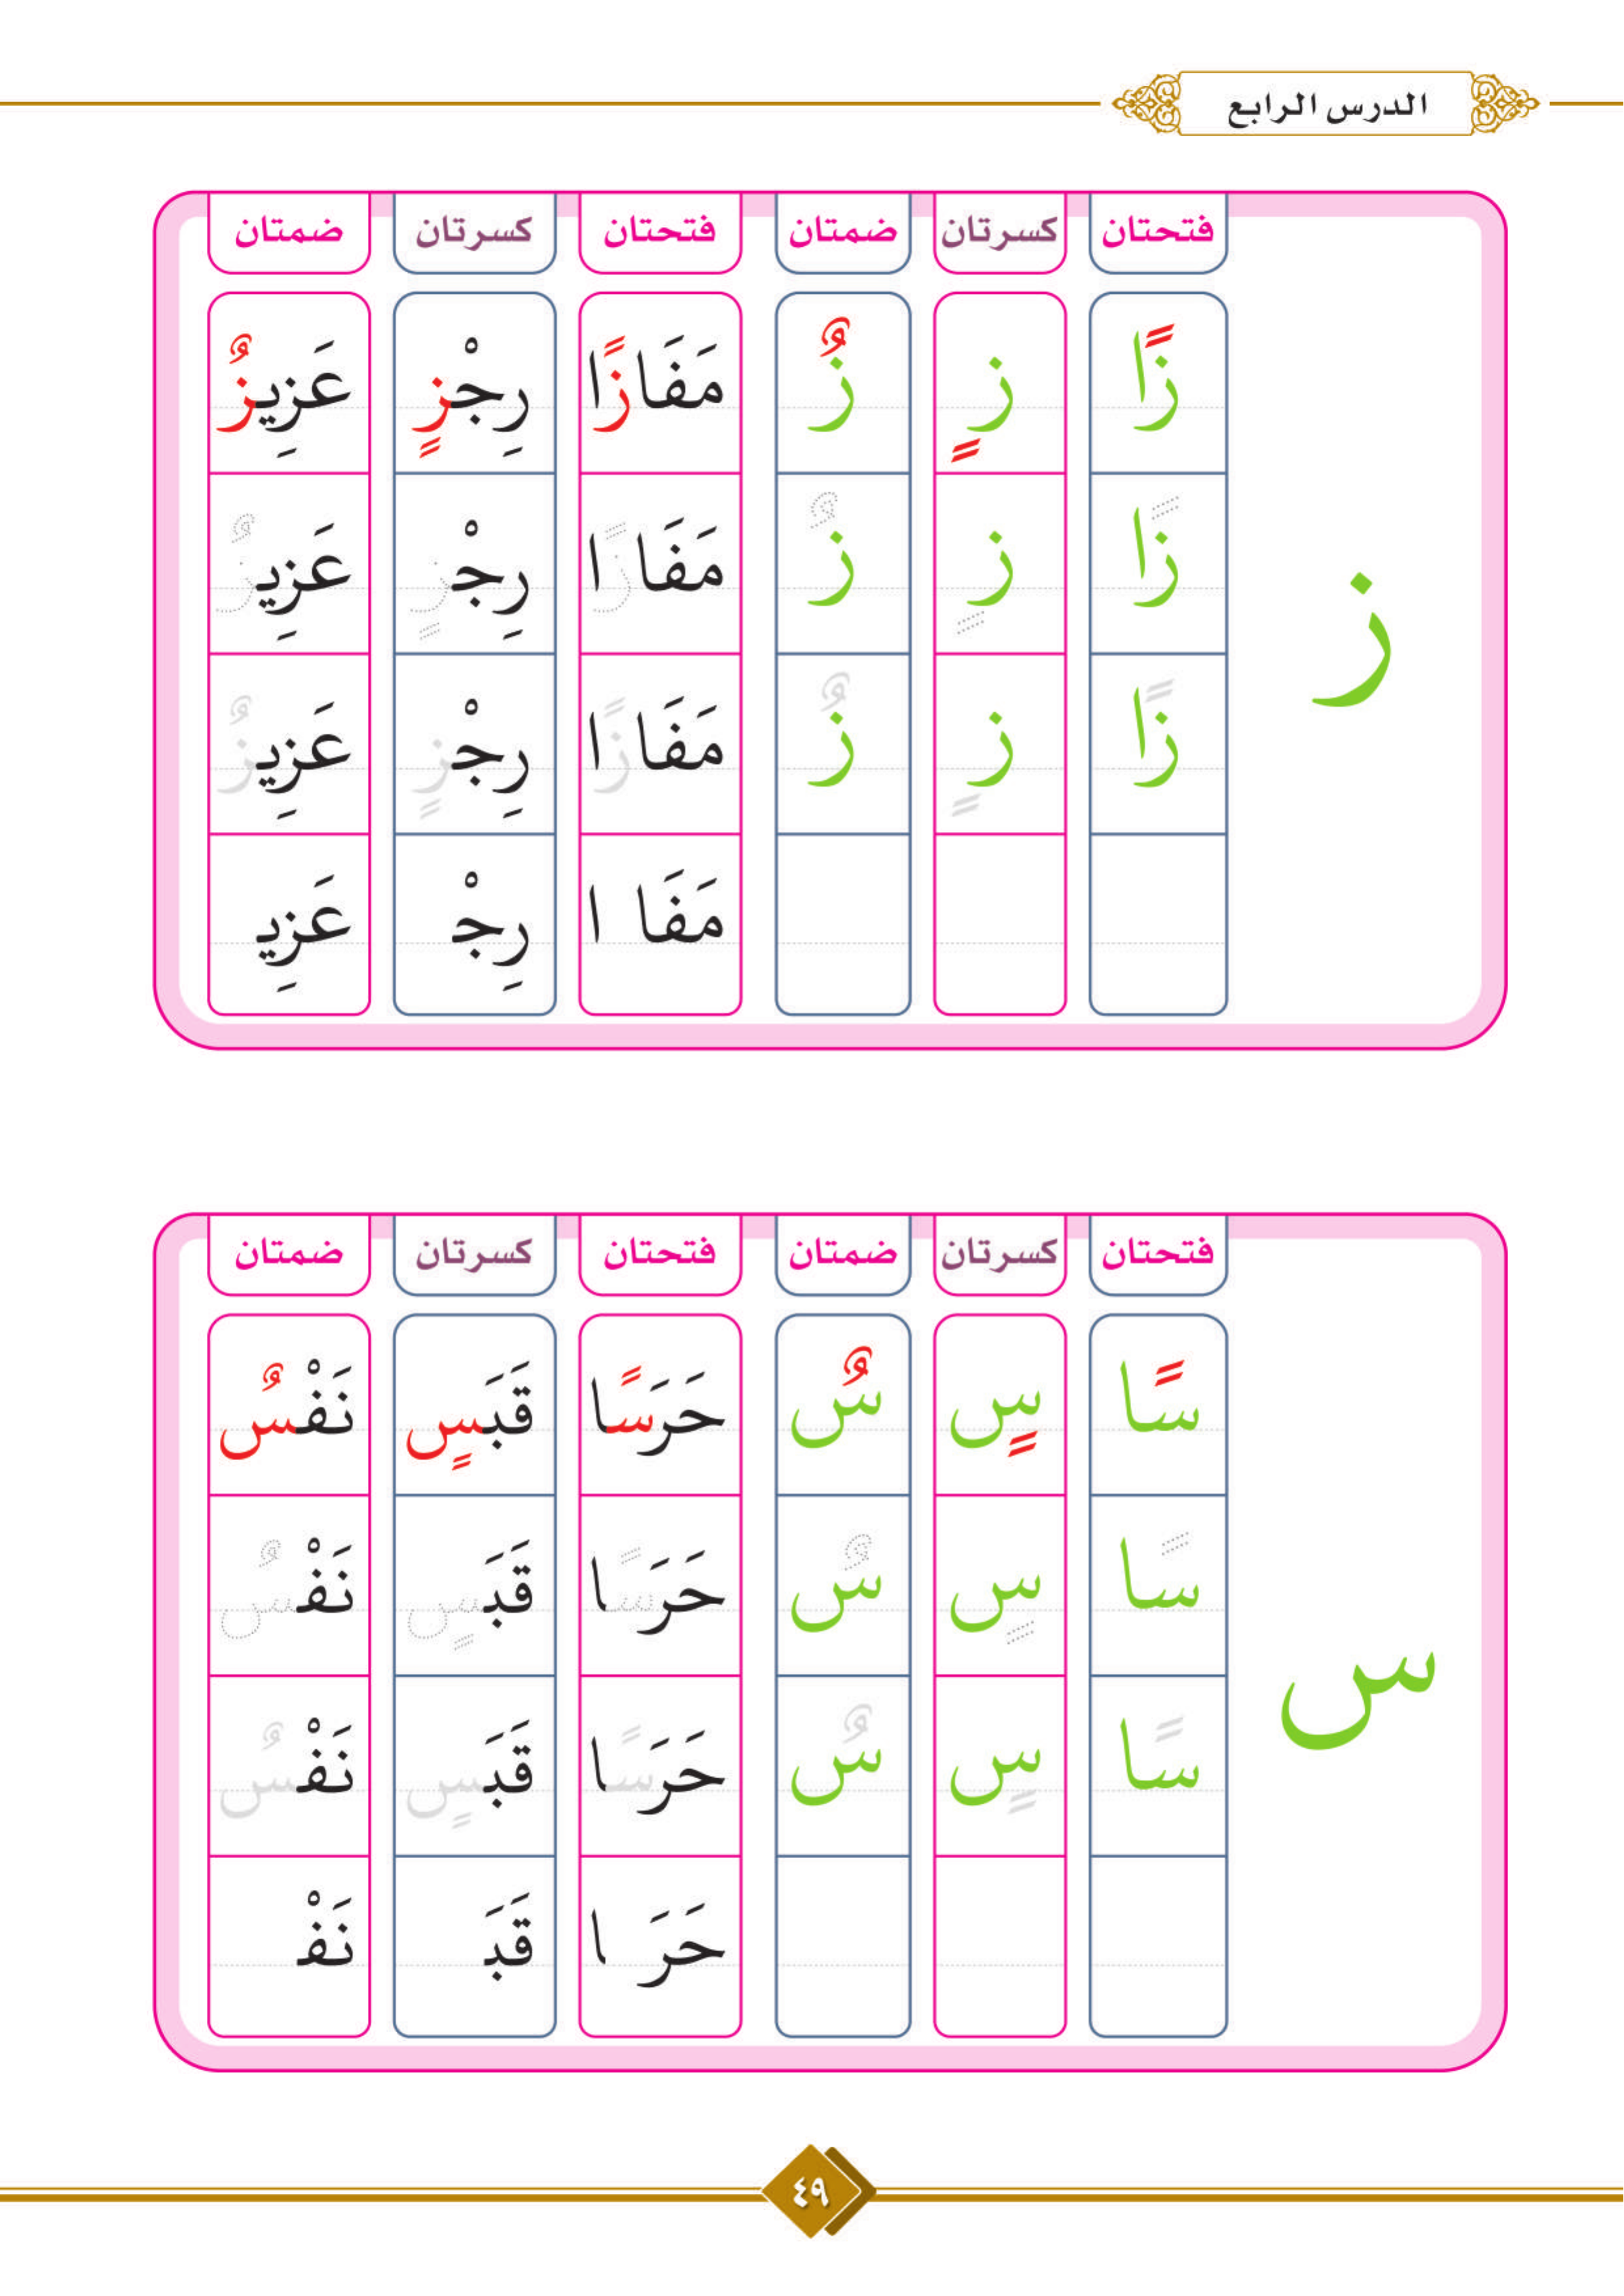 الدرس الرابع
فتحتان كسرتان ضمتان فتحتان كسرتان ضمتان
زًا زٍ زٌ مَفَازًا رِجْزٍ عَزِيزٌ
زًا زٍ زٌ مَفَازًا رِجْزٍ عَزِيزٌ
ز
زًا زٍ زٌ مَفَازًا رِجْزٍ عَزِيزٌ
مَفَا ا رِجْـ عَزِيـ
فتحتان كسرتان ضمتان فتحتان كسرتان ضمتان
سًا سٍ سٌ حَرَسًا قَبَسٍ نَفْسٌ
سًا سٍ سٌ حَرَسًا قَبَسٍ نَفْسٌ
س
سًا سٍ سٌ حَرَسًا قَبَسٍ نَفْسٌ
حَرَ ـا قَبَـ نَفْـ
٤٩